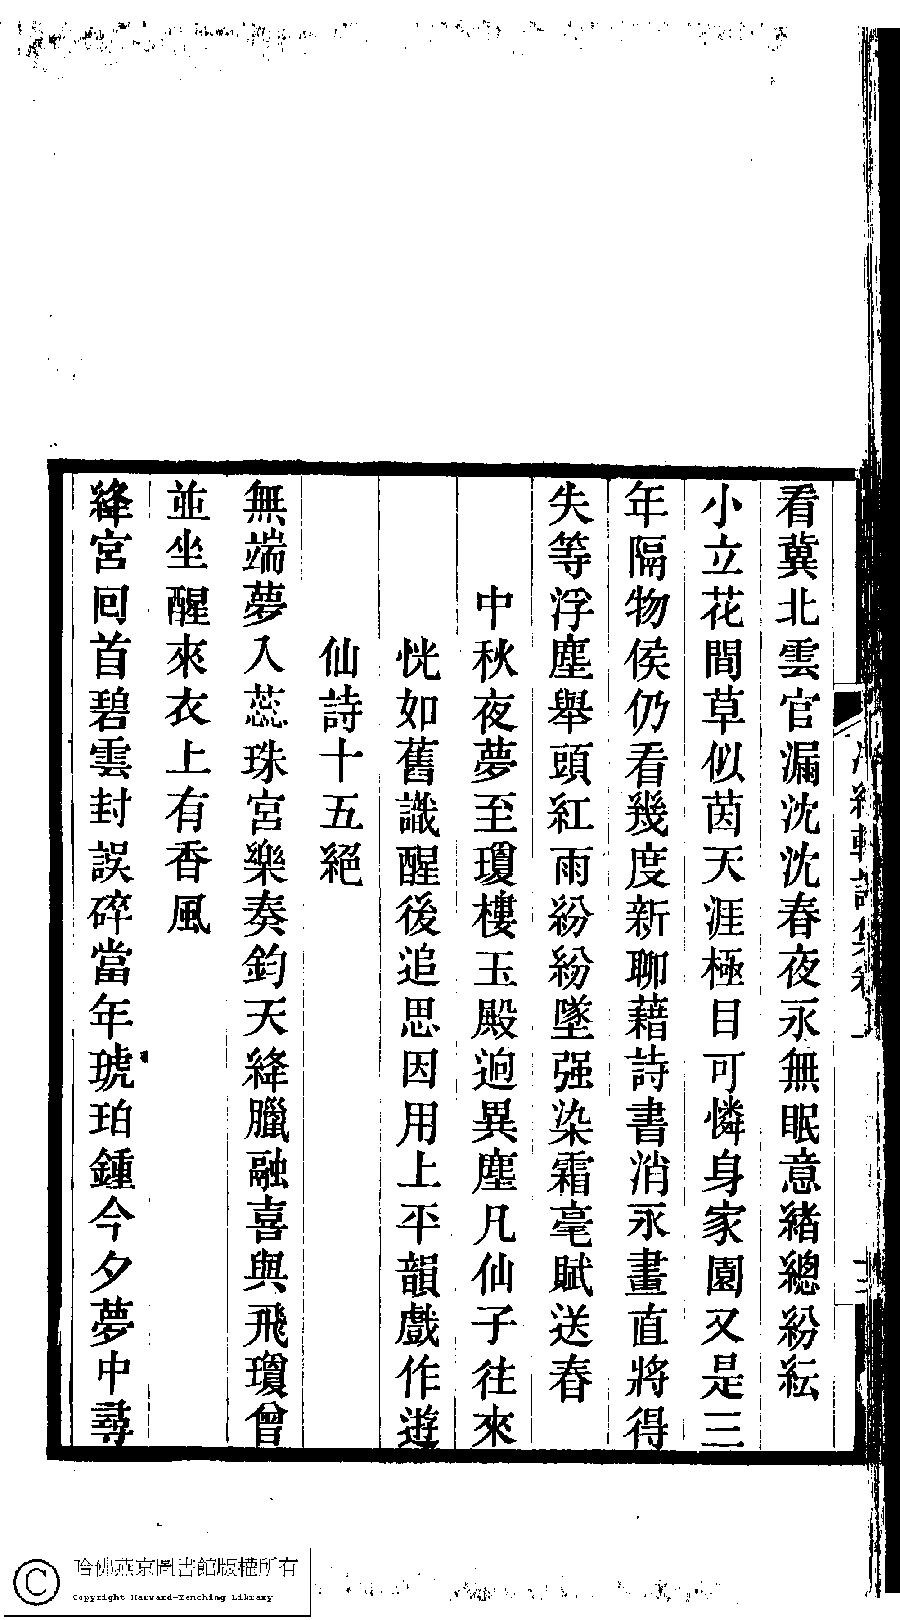 看冀北雲官漏沈沈春夜永無眠意緒總紛紜
小立花間草似茵天涯極目可憐身家園又是三
年隔物侯仍看幾度新聊藉詩書消永晝直將得
失等浮塵舉頭紅雨紛紛墜强染霜毫賦送春
中秋夜夢至瓊樓玉殿迥異塵凡仙子往來
恍如舊識醒後追思因用上平韻戲作遊
仙詩十五絕
無端夢入蕊珠宮樂奏鈞天絳臘融喜與飛瓊曾
並坐醒來衣上有香風
絳宮回首碧雲封誤碎當年琥珀鍾今夕夢中尋
哈佛燕京圖書館版權所有
Copyright Harvard-Yenching Library